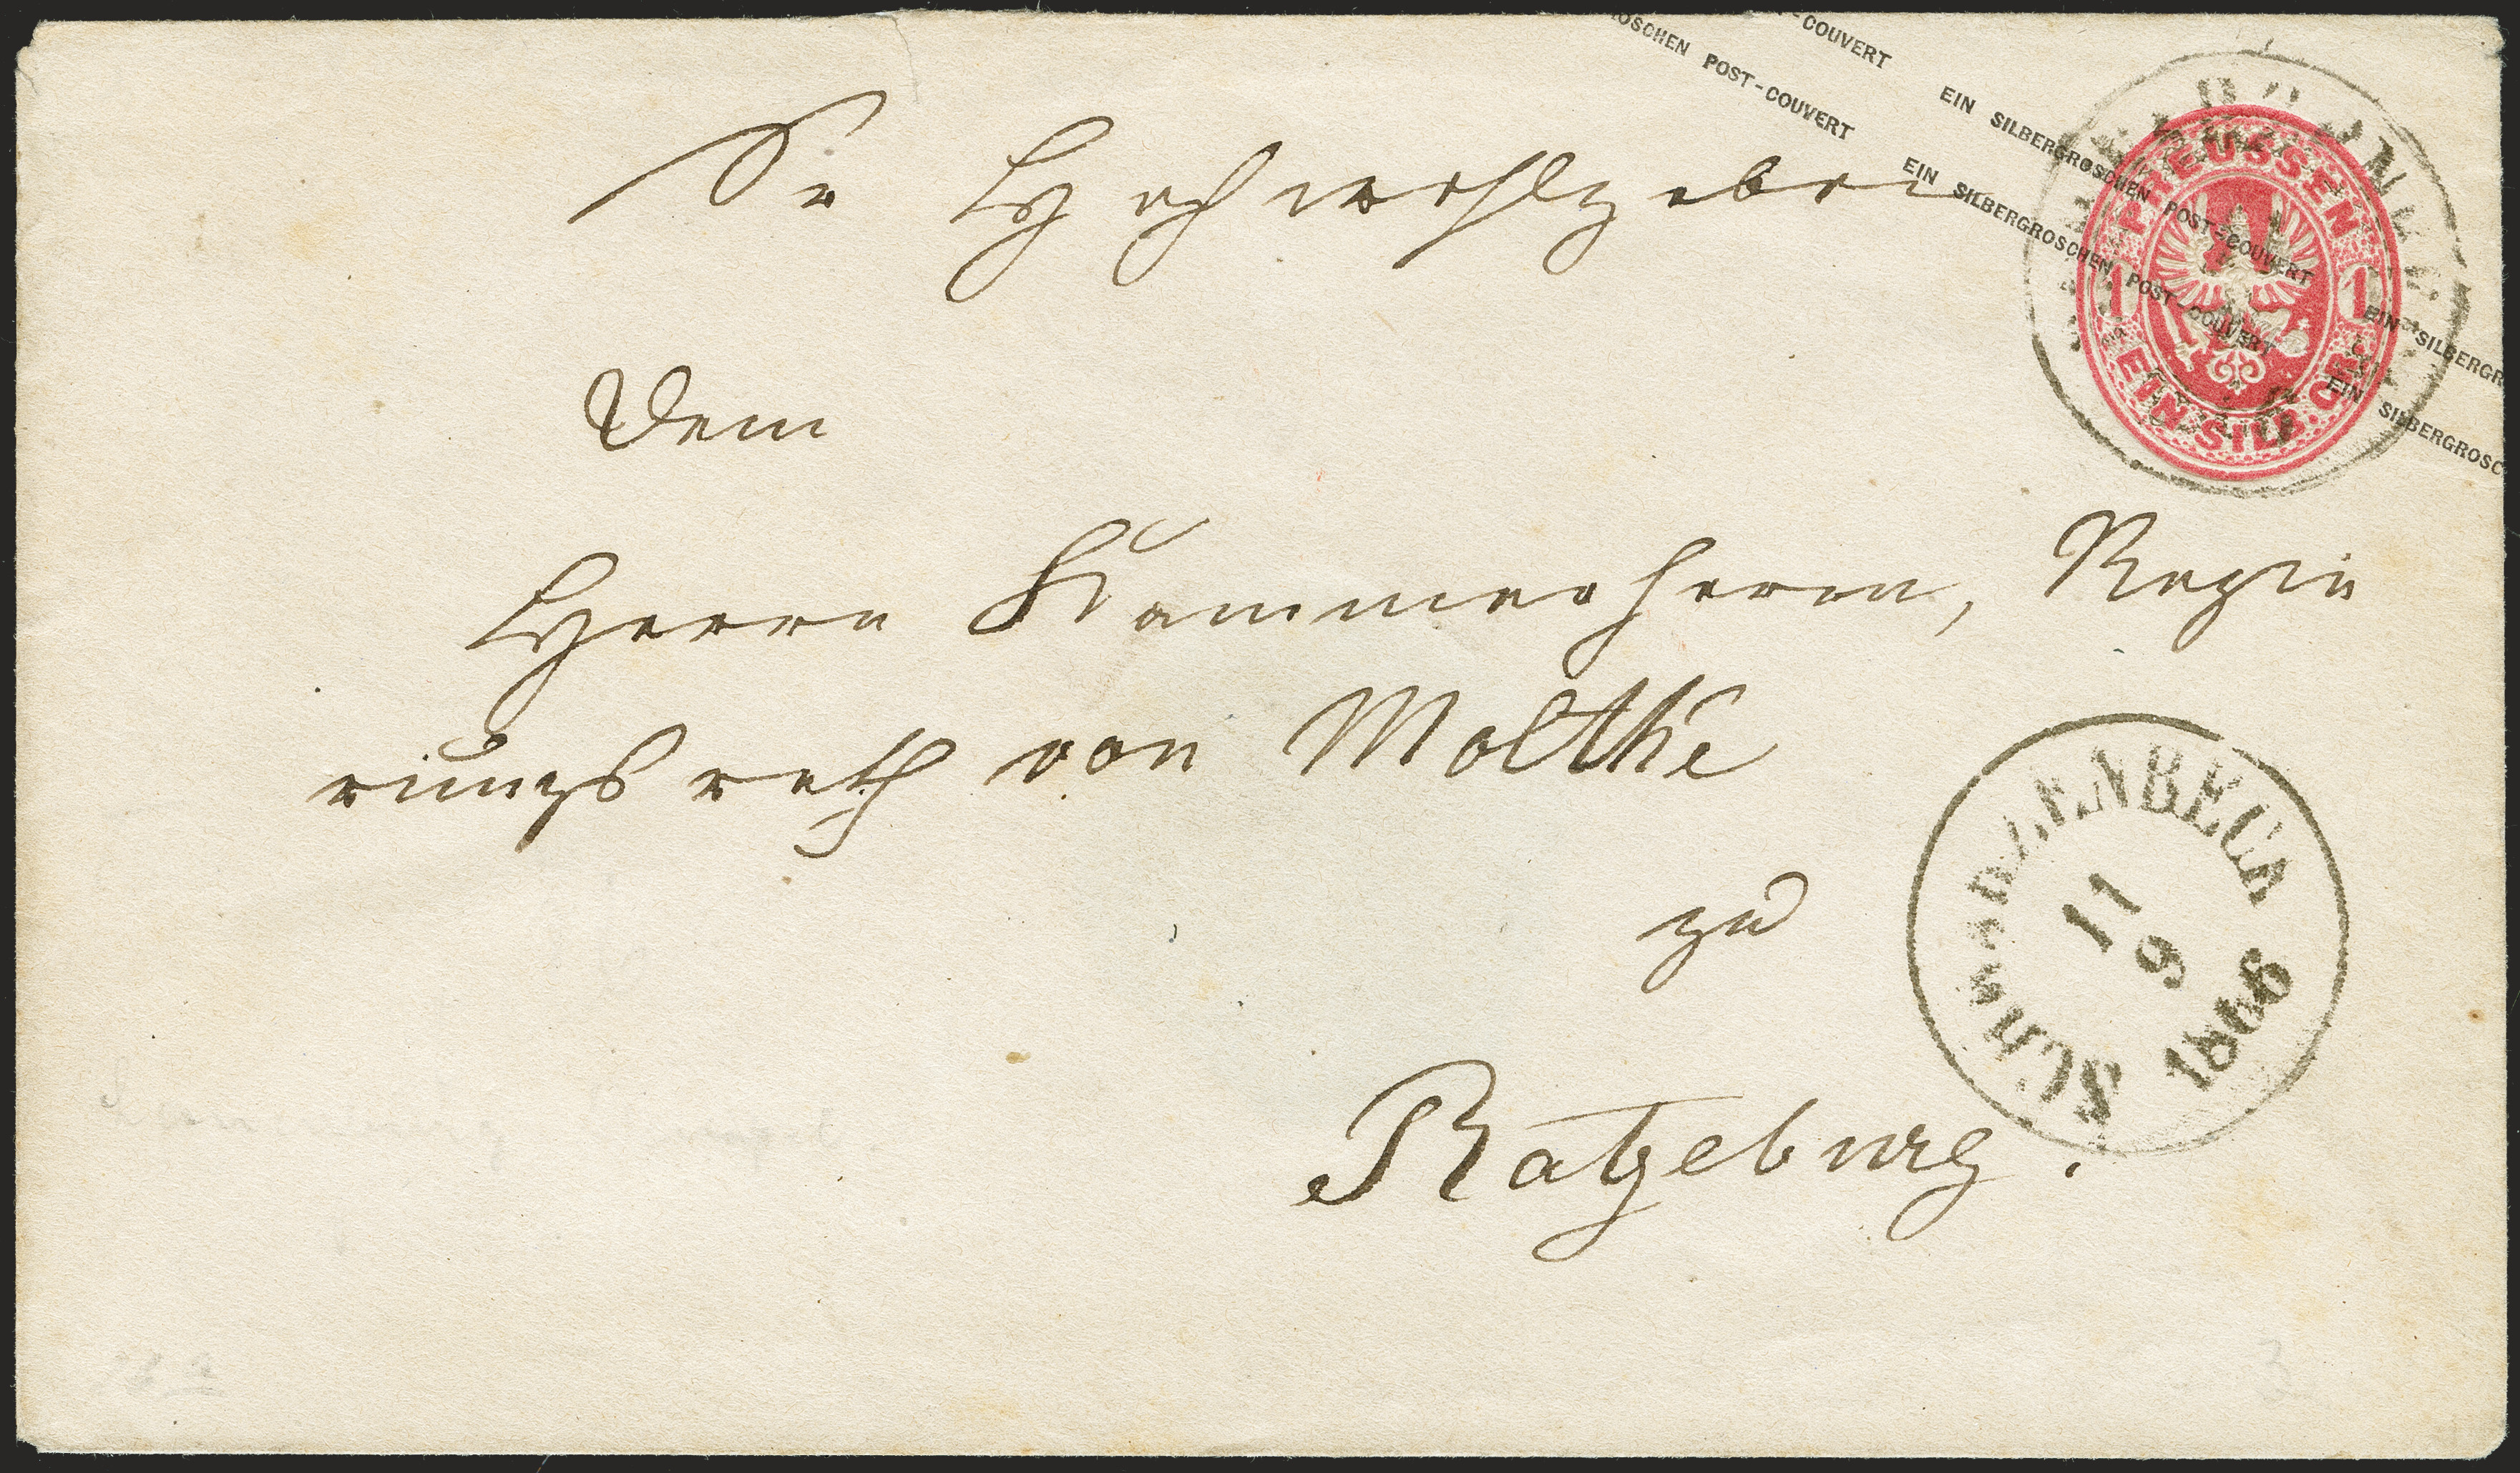 OSCHEN POST-COUVERT EIN SILBERGROSCHEN POST-COUVERT EIN SILBERGROSC
-COUVERT EIN SILBERGROSCHEN POST-COUVERT EIN SILBERGR
PREUSSEN
1 1
EIN SILB. GR.
Sr Hochwohlgebor
Dem
Herrn Kammerherrn, Regie
rungsrath von Moltke
zu
Ratzeburg.
SCHWARZENBECK
11
9
1866